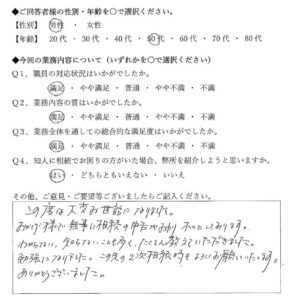 ◆ご回答者様の性別・年齢を〇で選択ください。
【性別】 男性 ・ 女性
【年齢】 20代 ・ 30代 ・ 40代 ・ 50代 ・ 60代 ・ 70代 ・ 80代
◆今回の業務内容について（いずれかを〇で選択ください）
Q1．職員の対応状況はいかがでしたか。
満足 ・ やや満足 ・ 普通 ・ やや不満 ・ 不満
Q2．業務内容の質はいかがでしたか。
満足 ・ やや満足 ・ 普通 ・ やや不満 ・ 不満
Q3．業務全体を通しての総合的な満足度はいかがでしたか。
満足 ・ やや満足 ・ 普通 ・ やや不満 ・ 不満
Q4．知人に相続でお困りの方がいた場合、弊所を紹介しようと思いますか。
はい ・ どちらともいえない ・ いいえ
その他、ご意見・ご要望等ございましたらご記入ください。
この度は大変お世話になりました。
おかげ様で無事に相続の申告がおわり ホッとしております。
わからない、知らないことも多く、たくさん教えていただきました。
勉強になりました。この先の2次相続時もよろしくお願いいたします。
ありがとうございました。